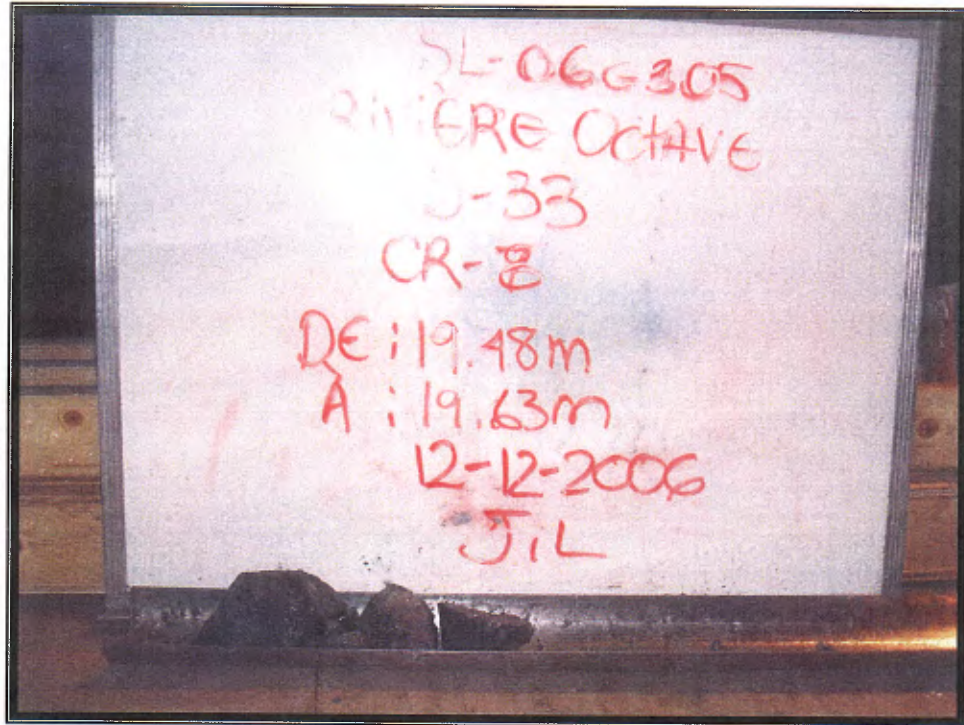 SL-06G305
RiViERE OCtAVE
-33
CR-8
DE : 19.48m
À : 19.63m
12-12-2006
JiL